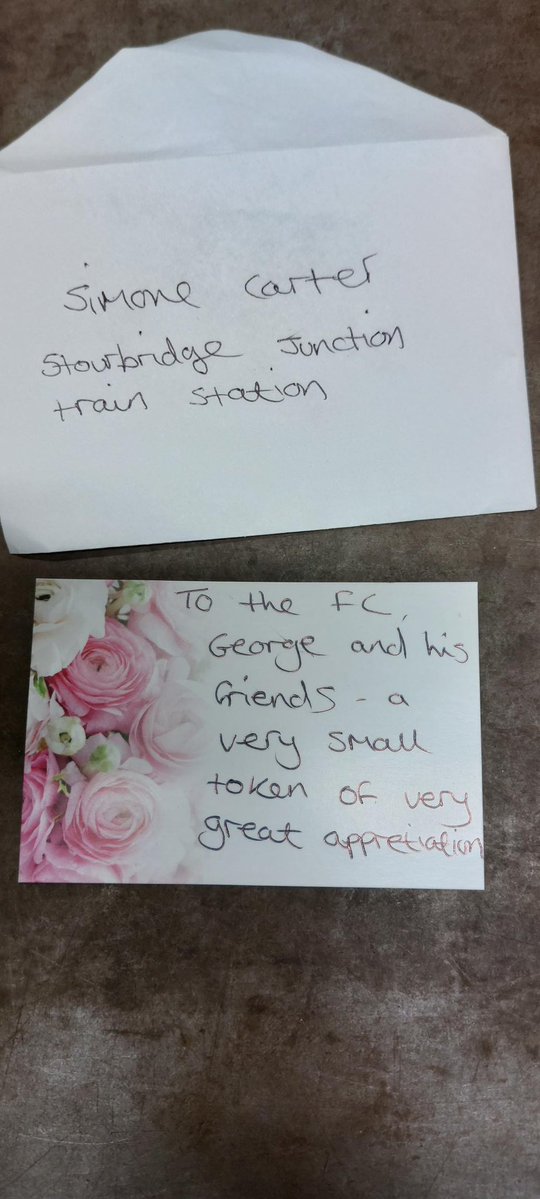 Simone Carter
Stourbridge Junction
train station
To the FC,
George and his
friends - a
very small
token of very
great appretiation